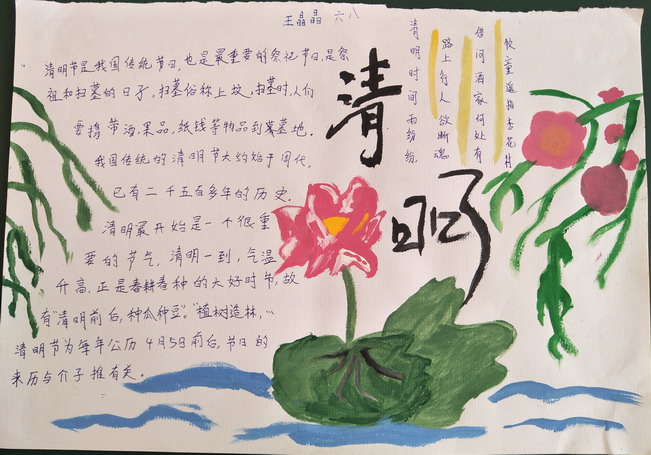 王晶晶 六八
清明节是我国传统节日,也是最重要的祭记节日,是祭
祖和扫墓的日子,扫墓俗称上坟,扫墓时,人们
要携带酒、果品,纸钱等物品到墓地。
我国传统的清明节大约始于周代,
已有二千五百多年的历史。
清明最开始是一个很重
要的节气,清明一到,气温
升高,正是春耕春种的大好时节,故
有“清明前后,种瓜种豆”。“植树造林,
清明节为每年公历4月5日前后,节日的
来历与介子推有关。
清明
清明时间雨纷纷
路上行人欲断魂
借问酒家何处有
牧童遥指杏花村